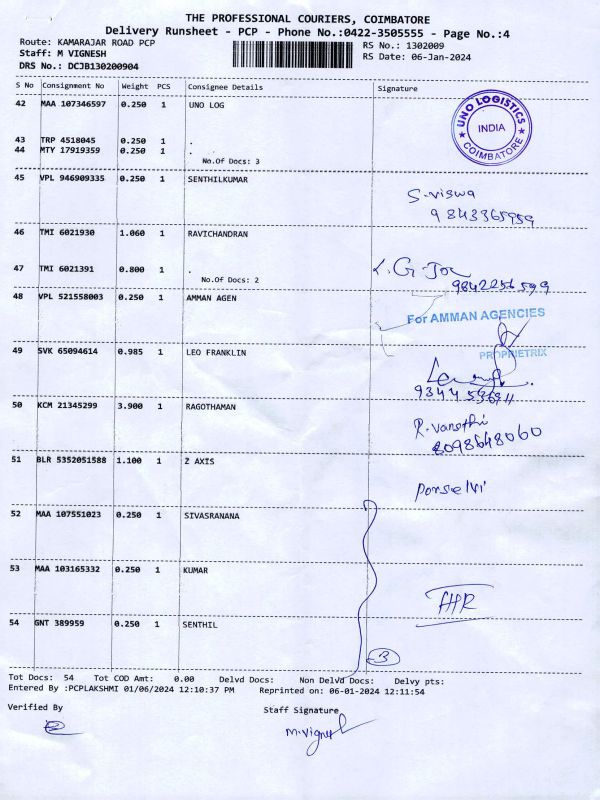 THE PROFESSIONAL COURIERS, COIMBATORE
Delivery Runsheet - PCP - Phone No.:0422-3505555 - Page No.:4
Route: KAMARAJAR ROAD PCP RS No.: 1302009
Staff: M VIGNESH RS Date: 06-Jan-2024
DRS No.: DCJB130200904
S No Consignment No Weight PCS Consignee Details Signature
42 MAA 107346597 0.250 1 UNO LOG
UNO LOGISTICS
INDIA
COIMBATORE
43 TRP 4518045 0.250 1 .
44 MTY 17919359 0.250 1 .
No.Of Docs: 3
45 VPL 946909335 0.250 1 SENTHILKUMAR
S. viswa
9843365959
46 TMI 6021930 1.060 1 RAVICHANDRAN
47 TMI 6021391 0.800 1 .
No.Of Docs: 2
9842256599
48 VPL 521558003 0.250 1 AMMAN AGEN
For AMMAN AGENCIES
PROPRIETRIX
49 SVK 65094614 0.985 1 LEO FRANKLIN
50 KCM 21345299 3.900 1 RAGOTHAMAN
8098648060
51 BLR 5352051588 1.100 1 Z AXIS
Ponselvi
52 MAA 107551023 0.250 1 SIVASRANANA
53 MAA 103165332 0.250 1 KUMAR
54 GNT 389959 0.250 1 SENTHIL
3
Tot Docs: 54 Tot COD Amt: 0.00 Delvd Docs: Non Delvd Docs: Delvy pts:
Entered By :PCPLAKSHMI 01/06/2024 12:10:37 PM Reprinted on: 06-01-2024 12:11:54
Verified By Staff Signature
M.Vignesh